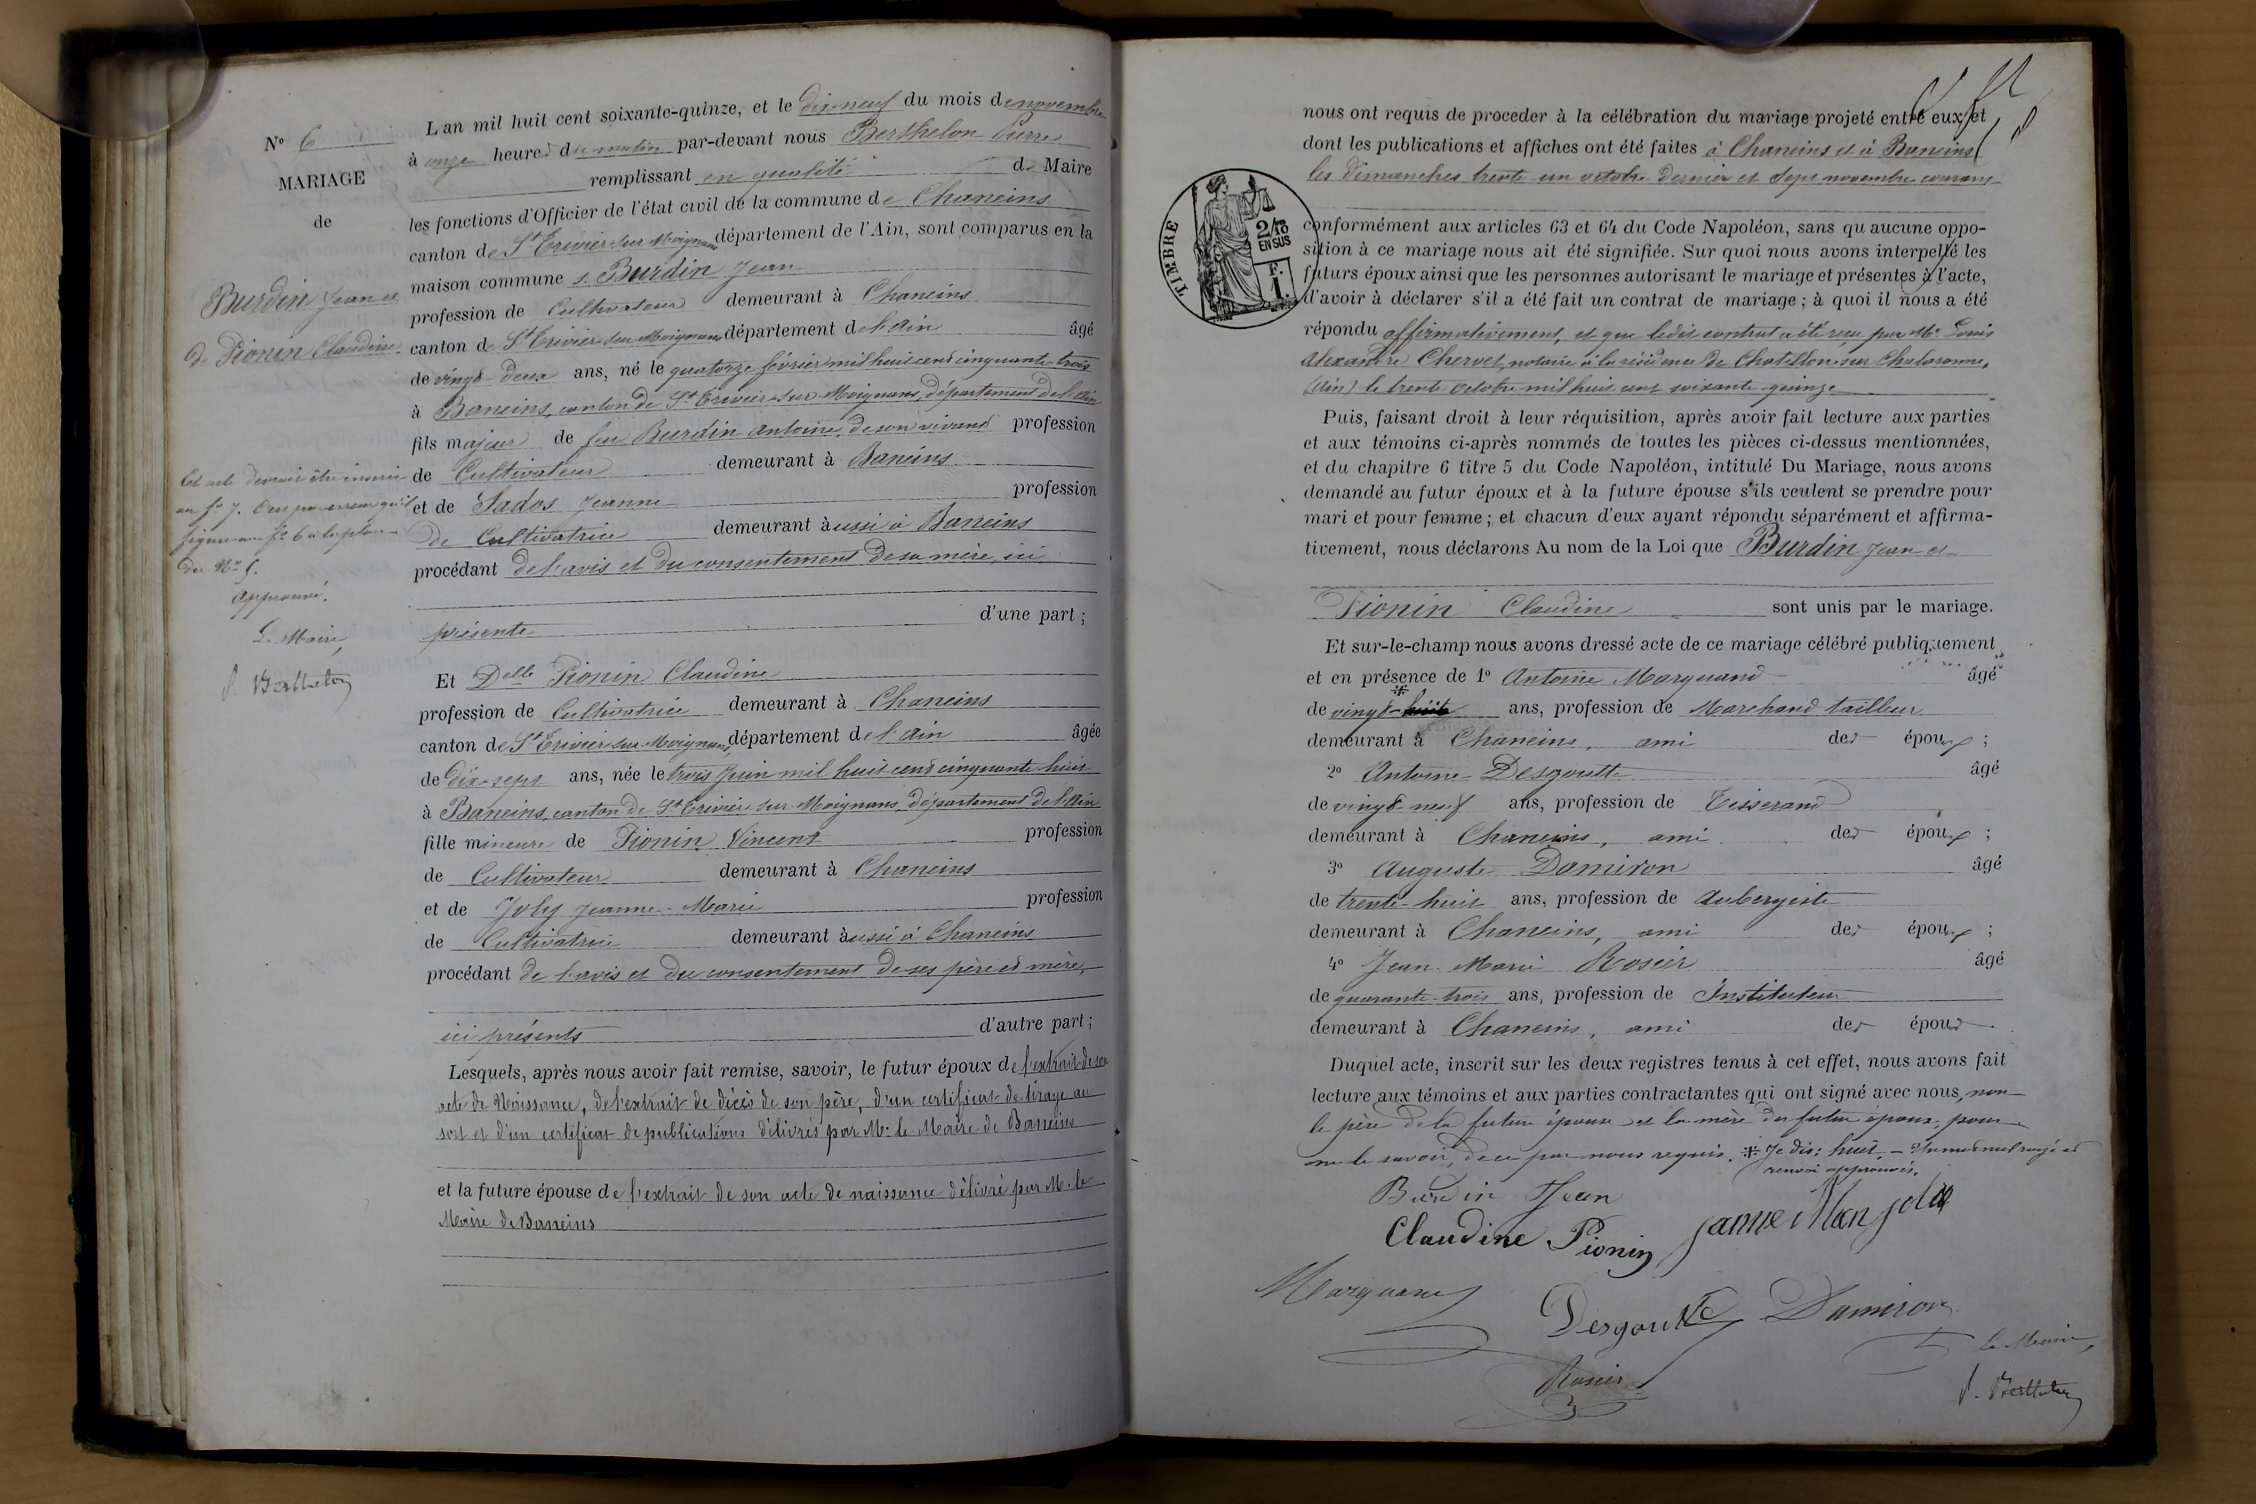 N° 6
MARIAGE
de
Burdin Jean et
de Pionin Claudine
Cet acte devrait être inscrit
au f° 7. C'est par erreur qu'il
figure au f° 6 à la place
du N° 5.
Approuvé.
Le Maire,
P. Berthelon
L'an mil huit cent soixante-quinze, et le dix-neuf du mois de novembre
à onze heures du matin par-devant nous Berthelon Pierre
remplissant en qualité de Maire
les fonctions d'Officier de l'état civil de la commune de Chaneins
canton de St Trivier sur Moignans département de l'Ain, sont comparus en la
maison commune s. Burdin Jean
profession de Cultivateur demeurant à Chaneins
canton de St Trivier sur Moignans département de l'Ain âgé
de vingt-deux ans, né le quatorze février mil huit cent cinquante-trois
à Baneins, canton de St Trivier-sur-Moignans, département de l'Ain
fils majeur de feu Burdin Antoine, de son vivant profession
de Cultivateur demeurant à Baneins
et de Sados Jeanne profession
de Cultivatrice demeurant aussi à Baneins
procédant de l'avis et du consentement de sa mère, ici
présente d'une part ;
Et Delle Pionin Claudine
profession de Cultivatrice demeurant à Chaneins
canton de St Trivier-sur-Moignans, département de l'Ain âgée
de dix-sept ans, née le trois juin mil huit cent cinquante-huit
à Baneins, canton de St Trivier-sur-Moignans, département de l'Ain
fille mineure de Pionin Vincent profession
de Cultivateur demeurant à Chaneins
et de Joly Jeanne-Marie profession
de Cultivatrice demeurant aussi à Chaneins
procédant de l'avis et du consentement de ses père et mère,
ici présents d'autre part ;
Lesquels, après nous avoir fait remise, savoir, le futur époux de l'extrait de son
acte de Naissance, de l'extrait de décès de son père, d'un certificat de tirage au
sort et d'un certificat de publications délivrés par Mr. le Maire de Baneins
et la future épouse de l'extrait de son acte de naissance délivré par M. le
Maire de Baneins
nous ont requis de procéder à la célébration du mariage projeté entre eux, et
dont les publications et affiches ont été faites à Chaneins et à Baneins
les dimanches trente un octobre dernier et sept novembre courant
TIMBRE
2/10
EN SUS
F.
1.
conformément aux articles 63 et 64 du Code Napoléon, sans qu'aucune oppo-
sition à ce mariage nous ait été signifiée. Sur quoi nous avons interpellé les
futurs époux ainsi que les personnes autorisant le mariage et présentes à l'acte,
d'avoir à déclarer s'il a été fait un contrat de mariage ; à quoi il nous a été
répondu affirmativement, et que ledit contrat a été reçu par Me Louis
Alexandre Chervet, notaire à la résidence de Chatillon sur Chalaronne,
(Ain) le trente octobre mil huit cent soixante-quinze
Puis, faisant droit à leur réquisition, après avoir fait lecture aux parties
et aux témoins ci-après nommés de toutes les pièces ci-dessus mentionnées,
et du chapitre 6 titre 5 du Code Napoléon, intitulé Du Mariage, nous avons
demandé au futur époux et à la future épouse s'ils veulent se prendre pour
mari et pour femme ; et chacun d'eux ayant répondu séparément et affirma-
tivement, nous déclarons Au nom de la Loi que Burdin Jean et
Pionin Claudine sont unis par le mariage.
Et sur-le-champ nous avons dressé acte de ce mariage célébré publiquement
et en présence de 1° Antoine Marguand âgé
de vingt-* ans, profession de Marchand tailleur
demeurant à Chaneins, ami des époux ;
2° Antoine Desgoutte âgé
de vingt-neuf ans, profession de Tisserand
demeurant à Chaneins, ami des époux ;
3° Auguste Damiron âgé
de trente-huit ans, profession de Aubergiste
demeurant à Chaneins, ami des époux ;
4° Jean-Marie Rosier âgé
de quarante-trois ans, profession de Instituteur
demeurant à Chaneins, ami des époux
Duquel acte, inscrit sur les deux registres tenus à cet effet, nous avons fait
lecture aux témoins et aux parties contractantes qui ont signé avec nous, non
le père de la future épouse et la mère du futur époux, pour
ne le savoir, de ce par nous requis. * Je dis : huit. - Un mot nul rayé et
renvoi approuvés.
Burdin Jean
Claudine Pionin
Marguand
Desgoutte
Damiron
Rosier
le Maire,
P. Berthelon